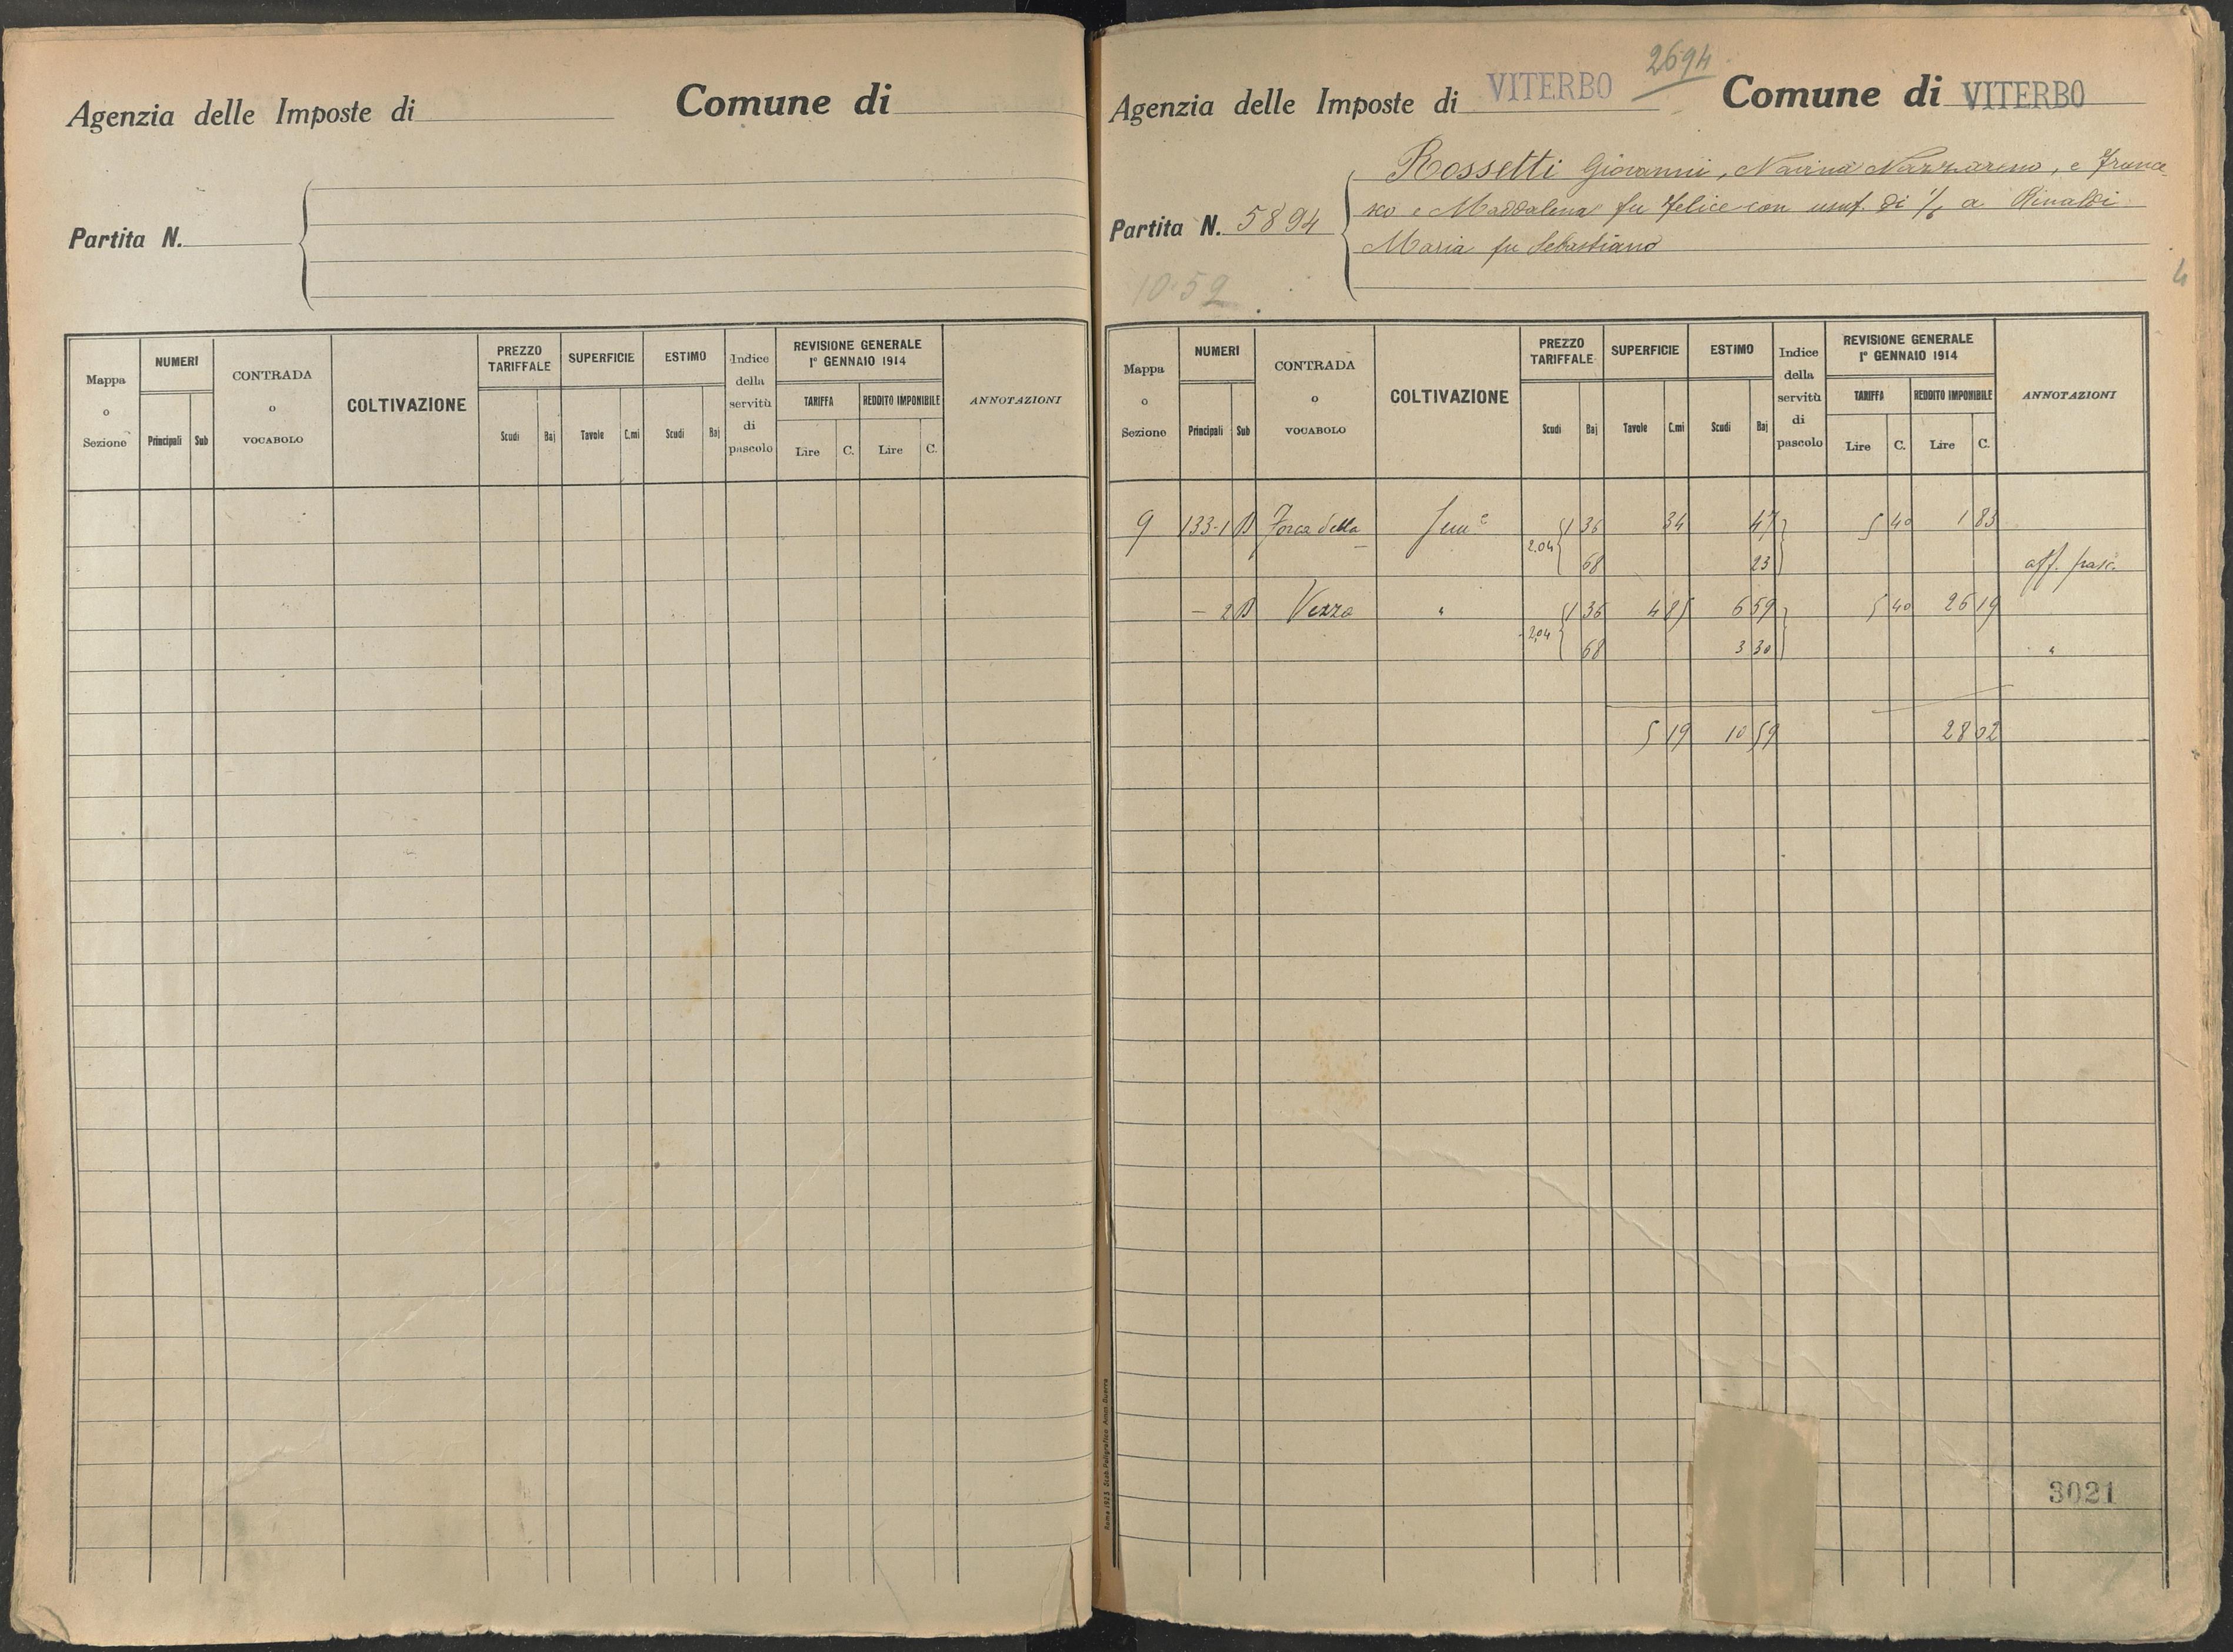 Agenzia delle Imposte di
Comune di
Partita N.
Mappa o Sezione
NUMERI
Principali Sub
CONTRADA o VOCABOLO
COLTIVAZIONE
PREZZO TARIFFALE
Scudi Baj
SUPERFICIE
Tavole C.mi
ESTIMO
Scudi Baj
Indice della servitù di pascolo
REVISIONE GENERALE
1° GENNAIO 1914
TARIFFA REDDITO IMPONIBILE
Lire C. Lire C.
ANNOTAZIONI
2694
Agenzia delle Imposte di VITERBO Comune di VITERBO
Rossetti Giovanni, Nazzareno, e France
sco e Maddalena fu Felice con usuf. di a Rinaldi
Partita N. 5894
Maria fu Sebastiano
10.59
4
Mappa o Sezione
NUMERI
Principali Sub
CONTRADA o VOCABOLO
COLTIVAZIONE
PREZZO TARIFFALE
Scudi Baj
SUPERFICIE
Tavole C.mi
ESTIMO
Scudi Baj
Indice della servitù di pascolo
REVISIONE GENERALE
1° GENNAIO 1914
TARIFFA REDDITO IMPONIBILE
Lire C. Lire C.
ANNOTAZIONI
9 133-1 della 1 36 34 47 5 40 1 83
2.04 68 23 aff. pasc.
- 2 Vezza " 1 36 4 85 6 59 5 40 26 19
2,04 68 3 30 "
5 19 10 59 28 02
3021
Roma 1923 Stab. Poligrafico Amm. Guerra